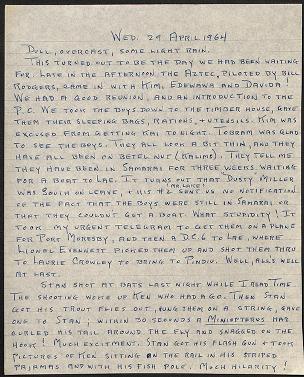 WED. 29 APRIL 1964
DULL, OVERCAST, SOME LIGHT RAIN.
THIS TURNED OUT TO BE THE DAY WE HAD BEEN WAITING
FOR. LATE IN THE AFTERNOON, THE AZTEC, PILOTED BY BILL
RODGERS, CAME IN WITH KIM, EDEWAWA AND DAVIDA!
WE HAD A GOOD REUNION, AND AN INTRODUCTION TO THE
P.C. WE TOOK THE BOYS DOWN TO THE TIMBER HOUSE, GAVE
THEM THEIR SLEEPING BAGS, RATIONS, + UTENSILS. KIM WAS
EXCUSED FROM GETTING KAI TONIGHT. TOBEAM WAS GLAD
TO SEE THE BOYS. THEY ALL LOOK A BIT THIN, AND THEY
HAVE ALL BEEN ON BETEL NUT (KALIMS). THEY TELL ME
THEY HAVE BEEN IN SAMARAI FOR THREE WEEKS WAITING
FOR A BOAT TO LAE. IT TURNS OUT THAT DUSTY MILLER
WAS SOUTH ON LEAVE, + HIS #2 SENT US NO NOTIFICATION
OF THE FACT THAT THE BOYS WERE STILL IN SAMARAI OR
THAT THEY COULDN'T GET A BOAT. WHAT STUPIDITY! IT
TOOK MY URGENT TELEGRAM TO GET THEM ON A PLANE
FOR PORT MORESBY, AND THEN A DC6 TO LAE, WHERE
LIONEL EVENNETT PICKED THEM UP AND SHOT THEM THRU
TO LAURIE CROWLEY TO BRING TO PINDIU. WELL, ALL'S WELL
AT LAST.
STAN SHOT AT BATS LAST NIGHT WHILE I READ TIME.
THE SHOOTING WOKE UP KEN WHO HAD A GO. THEN STAN
GOT HIS TROUT FLIES OUT, HUNG THEM ON A STRING, GAVE
ONE TO STAN; WITHIN 30 SECONDS A MINIOPTERUS HAD
CURLED HIS TAIL AROUND THE FLY AND SNAGGED ON THE
HOOK! MUCH EXCITMENT. STAN GOT HIS FLASH GUN + TOOK
PICTURES OF KEN SITTING ON THE RAIL IN HIS STRIPED
PAJAMAS AND WITH HIS FISH POLE. MUCH HILARITY!